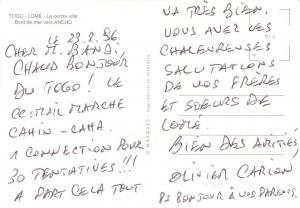 TOGO - LOMÉ - Le centre ville
Bord de mer vers ANEHO
LE 23.2.96
CHER M. BANDI
CHAUD BONJOUR
DU TOGO! LE
MARCHE
CAHIN-CAHA.
1 CONNECTION POUR
30 TENTATIVES!!!
A PART CELA TOUT
VA TRÈS BIEN.
VOUS AVEZ LES
CHALEUREUSES
SALUTATIONS
DE VOS FRÈRES
ET SOEURS DE
LOMÉ.
BIEN DES AMITIÉS,
OLIVIER CARION
PS BONJOUR A VOS PARENTS.